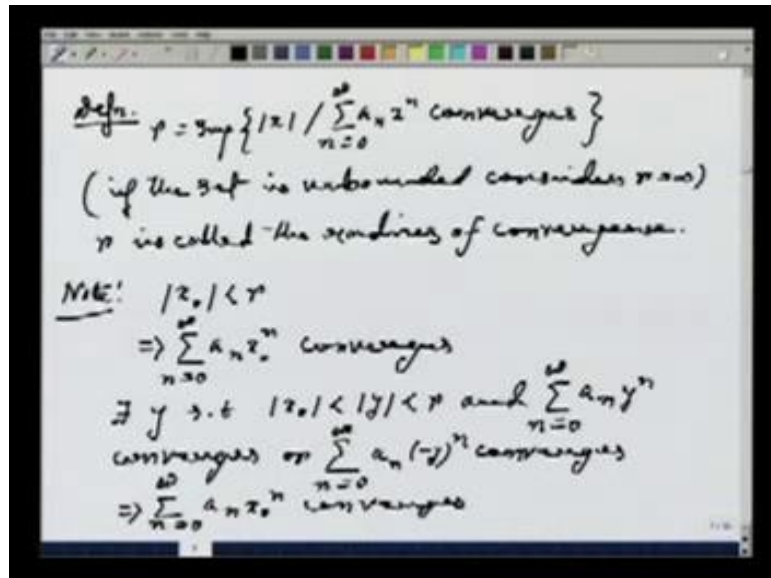 Defn. r = Sup { |x| / ∑_{n=0}^{∞} a_n x^n converges }
(if the set is unbounded consider r = ∞)
r is called the radius of convergence.
Note: |x_0| < r
=> ∑_{n=0}^{∞} a_n x_0^n converges
∃ y s.t |x_0| < |y| < r and ∑_{n=0}^{∞} a_n y^n
converges or ∑_{n=0}^{∞} a_n (-y)^n converges
=> ∑_{n=0}^{∞} a_n x_0^n converges